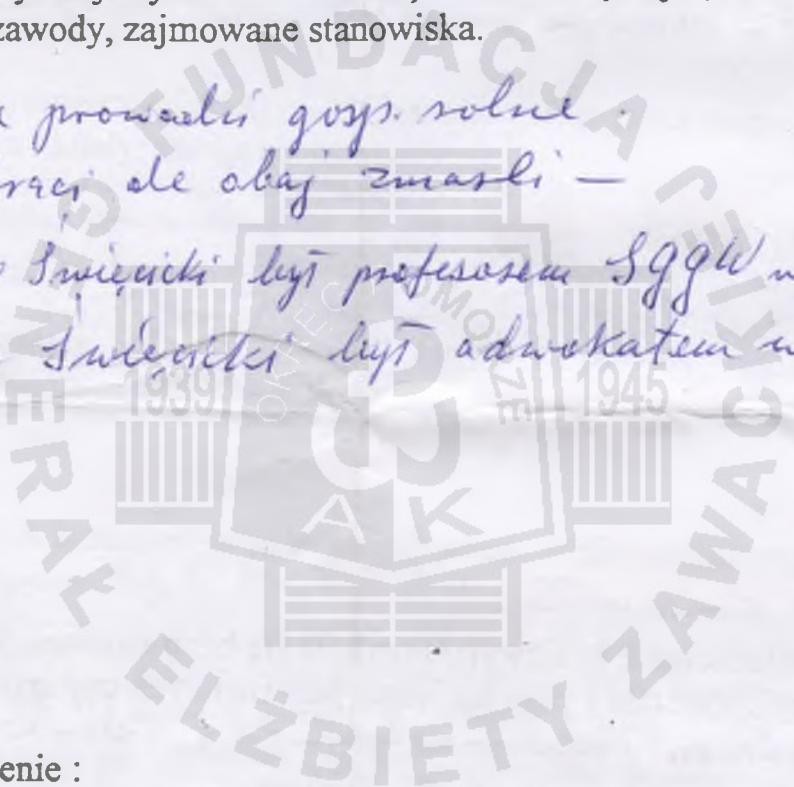 zawody, zajmowane stanowiska.
prowadzi gosp. rolne.
ale obaj zmarli —
Święcicki był profesorem SGGW
Święcicki był adwokatem
FUNDACJA GENERAŁ ELŻBIETY ZAWACKIEJ
POMORZE
1939 1945
AK
enie :